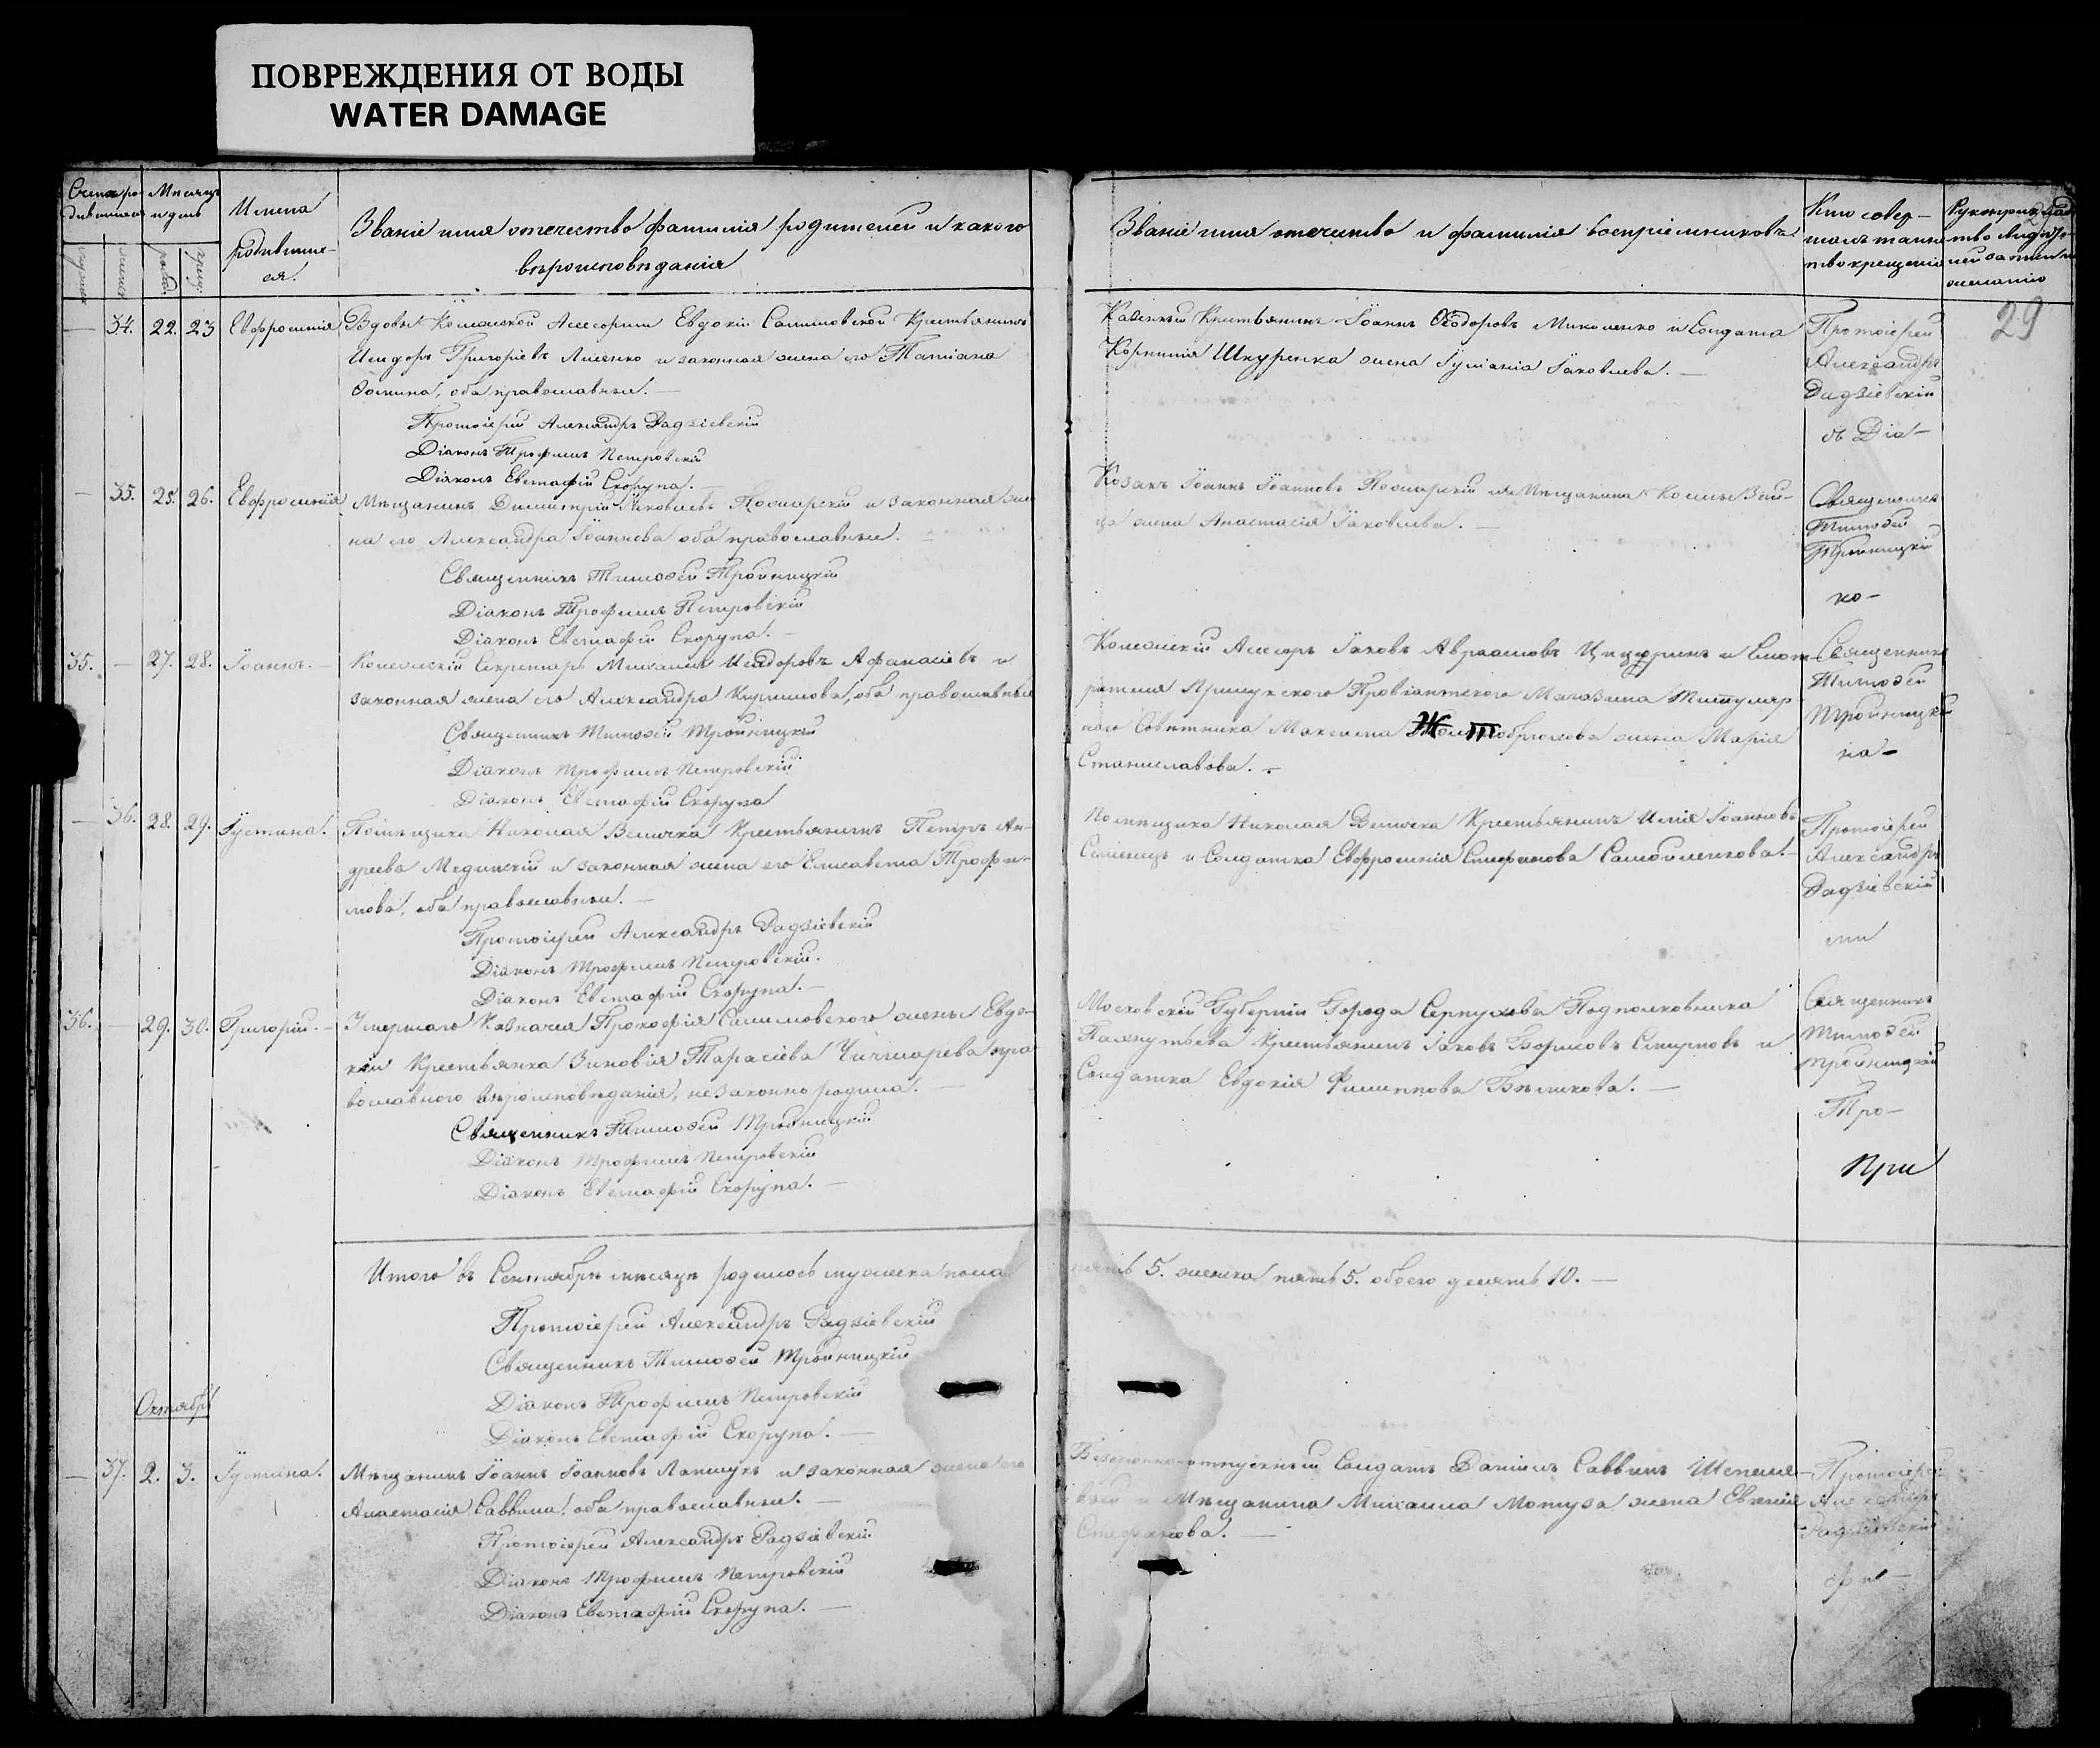 ПОВРЕЖДЕНИЯ ОТ ВОДЫ
WATER DAMAGE
Мѣсяцъ
и день
Имена
родивших-
ся.
Званіе имя отечество фамилія родителей и какого
вѣроисповѣданія
Званіе имя отечество и фамилія воспріемниковъ.
Кто совер-
шалъ таин-
ство крещенія
29
— 34. 22. 23 Евфросинія
Вдовы Коллежской Ассесорши Евдокіи Салимовской Крестьянинъ
Исидоръ Григоріевъ Лисенко и законная жена его Татіана
Фомина, оба православные. —
Протоіерей Александръ Радзіевскій
Діаконъ Трофимъ Петровскій
Діаконъ Евстафій Скорупа. —
Казенный Крестьянинъ Іоаннъ Ѳеодоровъ и Солдата
Корнилія Шкуренка жена Іуліанія Іаковлева. —
Протоіерей
Александръ
Радзіевскій
съ Діа-
— 35. 25. 26. Евфросинія
Мѣщанинъ Димитрій Іаковлевъ и законная же-
на его Александра Іоаннова оба православные. —
Священникъ Тимоѳей Тройницкій
Діаконъ Трофимъ Петровскій
Діаконъ Евстафій Скорупа. —
Козакъ Іоаннъ Іоанновъ и Мѣщанина
жена Анастасія Іаковлева. —
Священникъ
Тимоѳей
Тройницкій
ко-
35. — 27. 28. Іоаннъ. —
Коллежскій Секретарь Михаилъ Исидоровъ Афанасіевъ и
законная жена его Александра Кирилова, оба православные
Священникъ Тимоѳей Тройницкій
Діаконъ Трофимъ Петровскій
Діаконъ Евстафій Скорупа
Коллежскій Ассесоръ Іаковъ Авраамовъ и Смот-
рителя Прилукского Провіантского Магазина Титуляр-
наго Совѣтника Максима жена Марія
Станиславова. —
Священникъ
Тимоѳей
Тройницкій
на-
— 36. 28. 29. Іустина.
Помѣщика Николая Велички Крестьянинъ Петръ Ан-
дреевъ Мединскій и законная жена его Елисавета Трофи-
мова, оба православные. —
Протоіерей Александръ Радзіевскій
Діаконъ Трофимъ Петровскій.
Діаконъ Евстафій Скорупа. —
Помѣщика Николая Велички Крестьянинъ Илія Іоанновъ
и Солдатка Евфросинія Стефанова Самойленкова. —
Протоіерей
Александръ
Радзіевскій
36. — 29. 30. Григорій. —
Умершаго Казначея Прокофія Салимовского жены Евдо-
кіи Крестьянка Зиновія Тарасіева Чичкарева пра-
вославного вѣроисповѣданія, незаконно родила. —
Священникъ Тимоѳей Тройницкій
Діаконъ Трофимъ Петровскій
Діаконъ Евстафій Скорупа. —
Московской Губерніи Города Серпухова Подполковника
Крестьянинъ Іаковъ Борисовъ Смирновъ и
Солдатка Евдокія Филиппова Бѣликова. —
Священникъ
Тимоѳей
Тройницкій
Тро-
При
Итого въ Сентябрѣ мѣсяцѣ родилось мужеска пола
пять 5. женска пять 5. обоего десять 10. —
Протоіерей Александръ Радзіевскій
Священникъ Тимоѳей Тройницкій
Діаконъ Трофимъ Петровскій
Діаконъ Евстафій Скорупа. —
Октябрь
— 37. 2. 3. Іустина.
Мѣщанинъ Іоаннъ Іоанновъ Лапшукъ и законная жена его
Анастасія Саввина, оба православные. —
Протоіерей Александръ Радзіевскій
Діаконъ Трофимъ Петровскій
Діаконъ Евстафій Скорупа. —
Солдатъ Даніилъ Саввинъ
и Мѣщанина Михаила Мотуза жена Евгенія
Стефанова. —
Протоіерей
Александръ
Радзіевскій
фи-